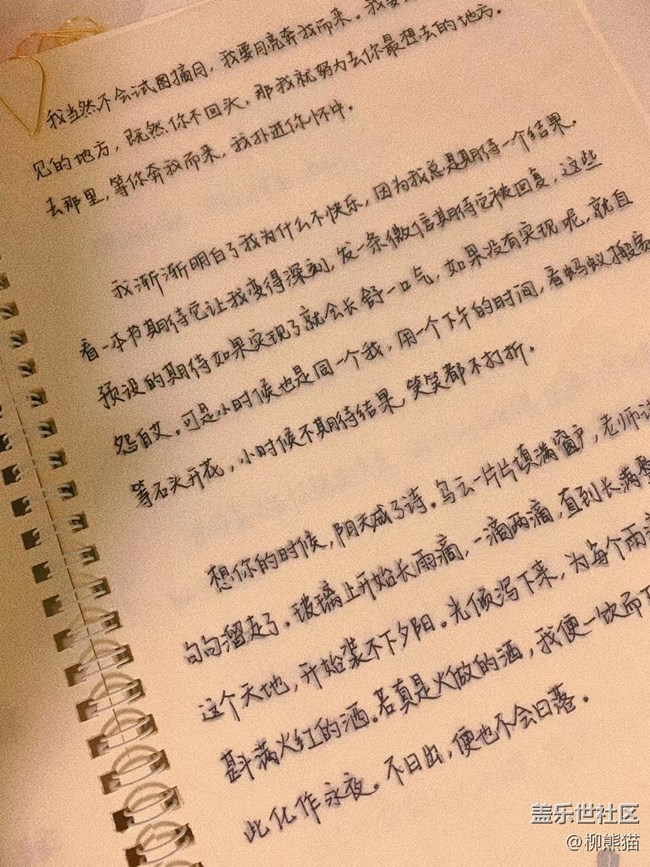 我当然不会试图摘月，我要月亮奔我而来。我要
见的地方，既然你不回头，那我就努力去你最想去的地方。
去那里，等你奔我而来，我扑进你怀中。
我渐渐明白了我为什么不快乐，因为我总是期待一个结果。
看一本书期待它让我变得深刻，发一条微信期待它被回复，这些
预设的期待如果实现了就会长舒一口气，如果没有实现呢，就自
怨自艾。可是小时候也是同一个我，用一个下午的时间，看蚂蚁搬家
等石头开花，小时候不期待结果，笑笑都不打折。
想你的时候，阴天成了诗。乌云一片片填满窗户，老师
句句溜走了。玻璃上开始长雨滴，一滴两滴，直到长满整
这个天地，开始装不下夕阳。光倾泻下来，为每个雨滴
斟满火红的酒。若真是火做的酒，我便一饮而
此化作永夜。不日出，便也不会日落。
盖乐世社区
@柳熊猫